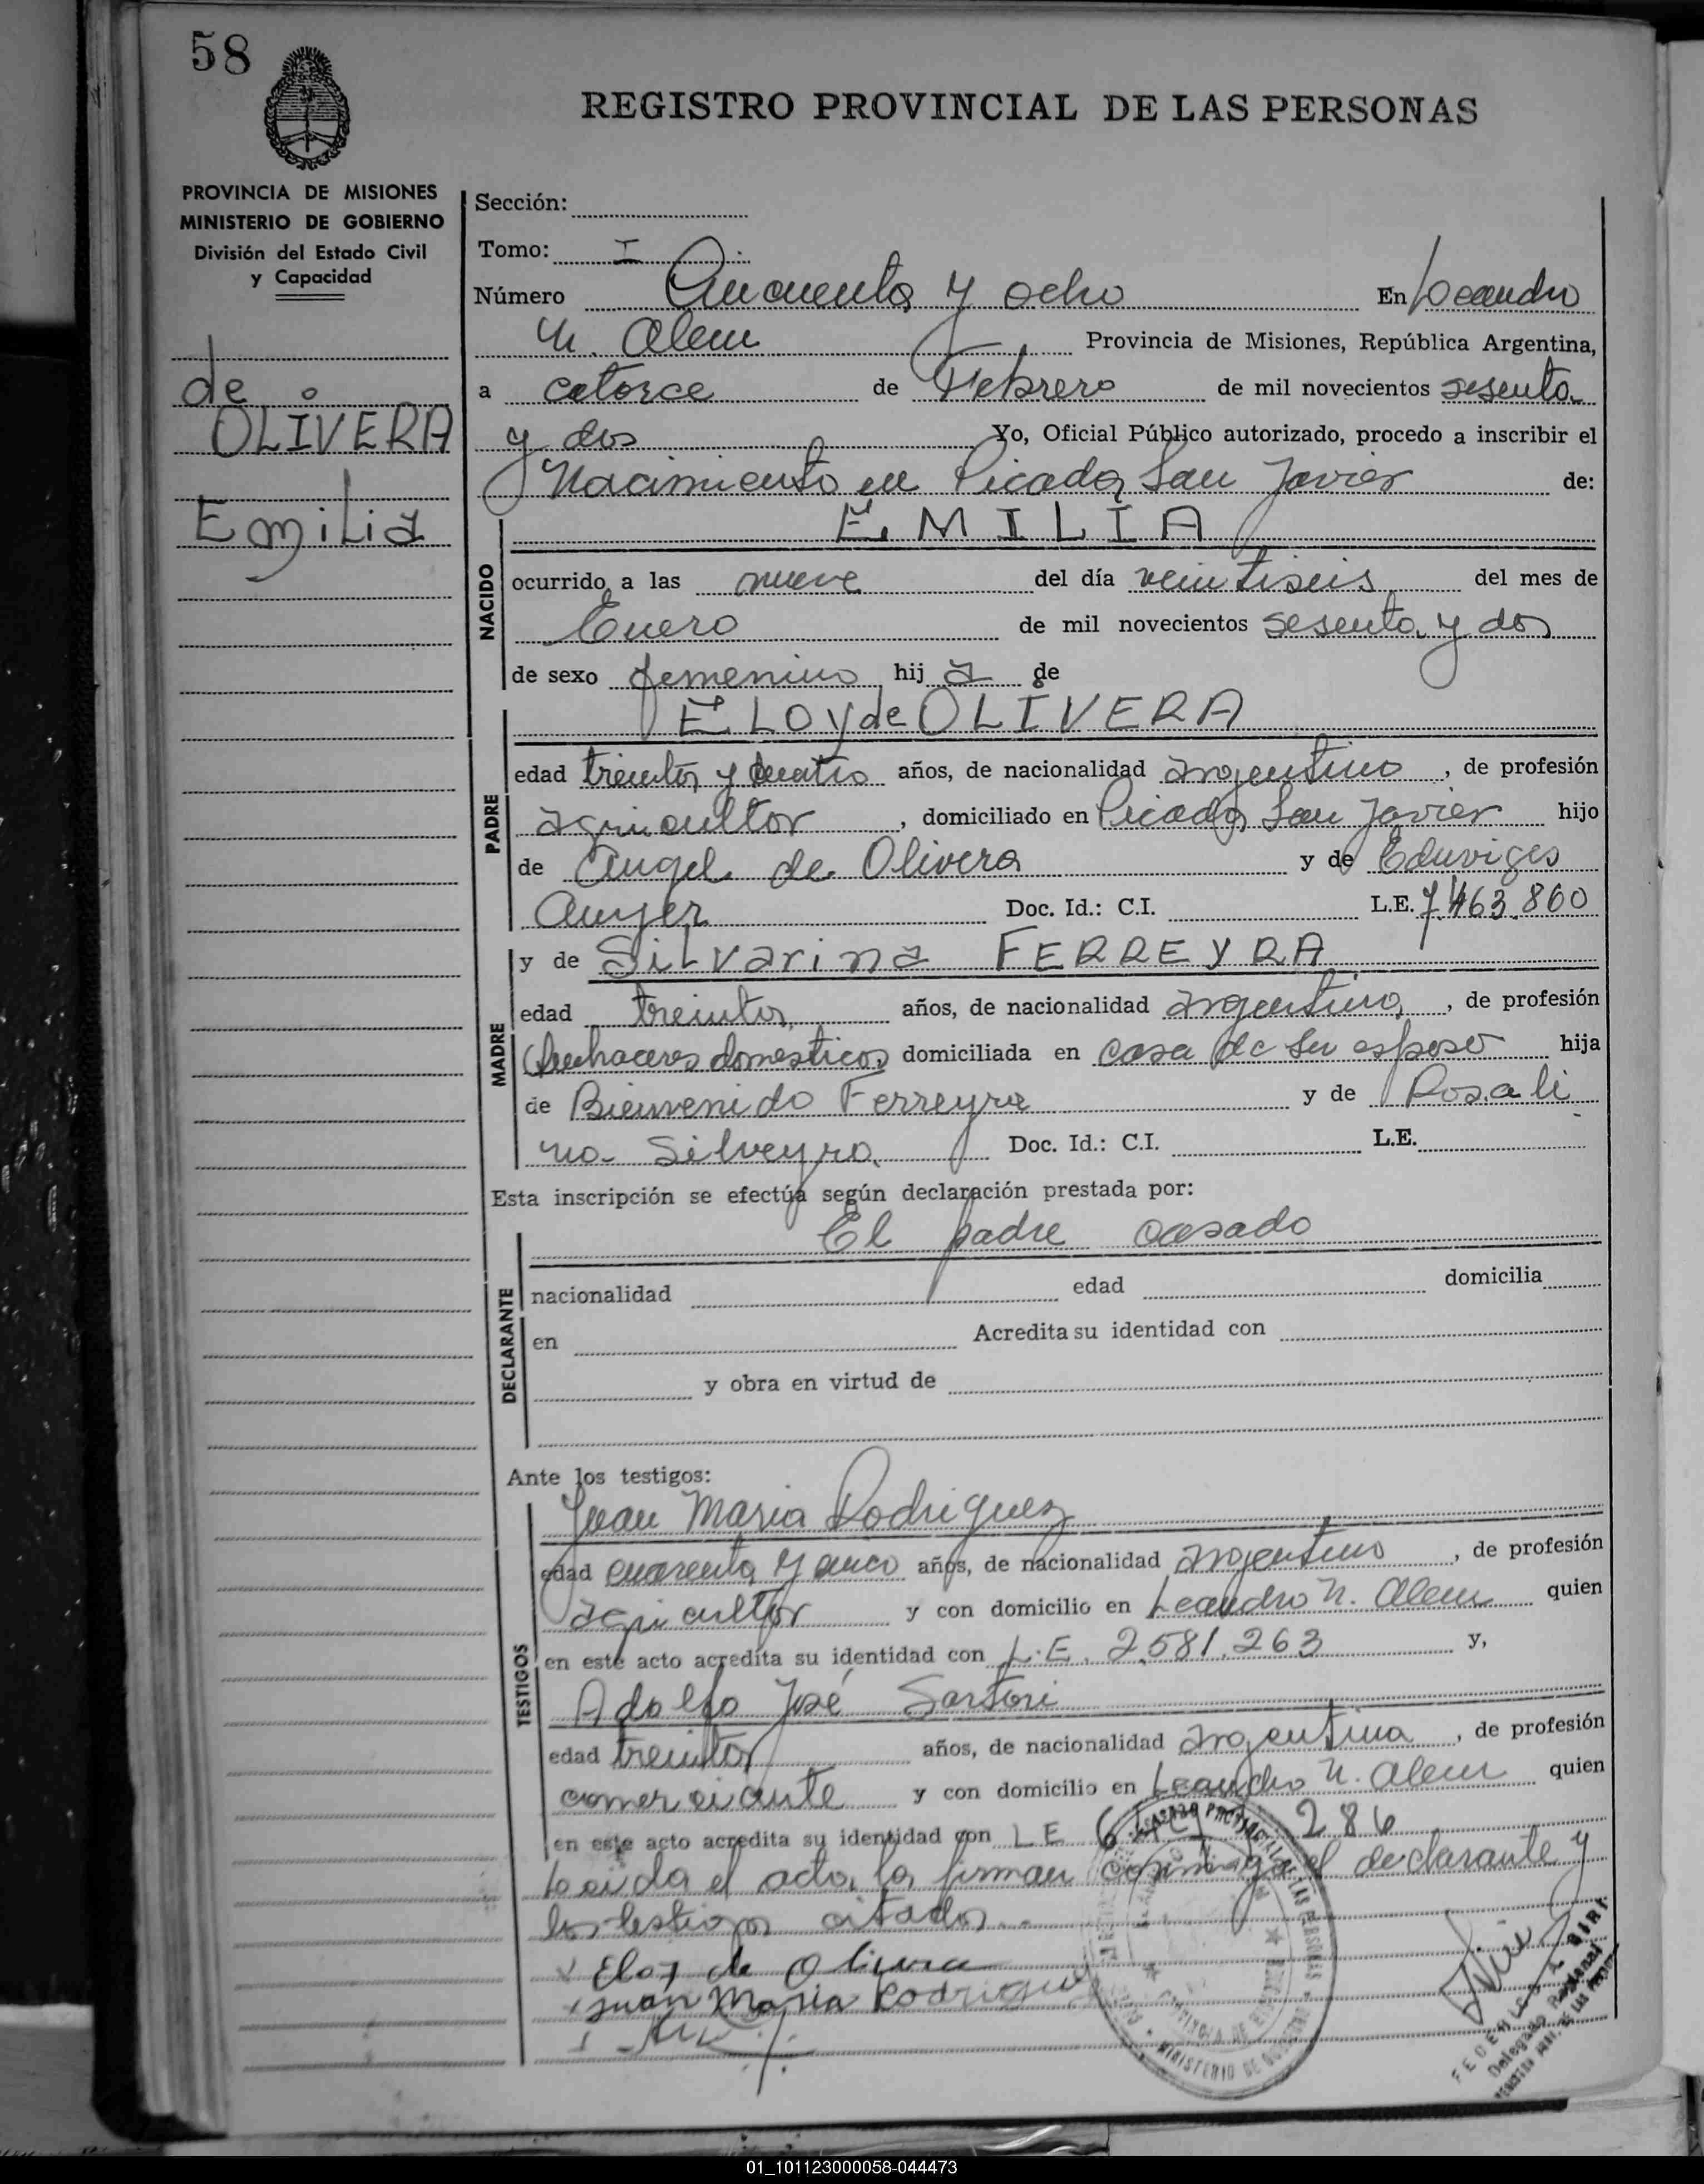 58
REGISTRO PROVINCIAL DE LAS PERSONAS
PROVINCIA DE MISIONES
MINISTERIO DE GOBIERNO
División del Estado Civil
y Capacidad
de
OLIVERA
Emilia
Sección:
Tomo: I
Número Cincuenta y ocho En Leandro
N. Alem Provincia de Misiones, República Argentina,
a catorce de Febrero de mil novecientos sesenta
y dos Yo, Oficial Público autorizado, procedo a inscribir el
Nacimiento en Picada San Javier de:
EMILIA
NACIDO
ocurrido a las nueve del día veintiseis del mes de
Enero de mil novecientos sesenta y dos
de sexo femenino hij a de
ELOY de OLIVERA
PADRE
edad treinta y cuatro años, de nacionalidad argentino, de profesión
agricultor, domiciliado en Picada San Javier hijo
de Angel de Olivera y de Eduviges
Doc. Id.: C.I. L.E. 7.463.860
y de Silvarina FERREYRA
MADRE
edad treinta años, de nacionalidad argentina, de profesión
quehaceres domesticos domiciliada en casa de su esposo hija
de Bienvenido Ferreyra y de Rosali
na Silveyra Doc. Id.: C.I. L.E.
Esta inscripción se efectúa según declaración prestada por:
El padre casado
DECLARANTE
nacionalidad edad domicilia
en Acredita su identidad con
y obra en virtud de
Ante los testigos:
Juan Maria Rodriguez
TESTIGOS
edad cuarenta y cinco años, de nacionalidad argentino, de profesión
agricultor y con domicilio en Leandro N. Alem quien
en este acto acredita su identidad con L.E. 2.581.263 y,
Adolfo José Sartori
edad treinta años, de nacionalidad argentina, de profesión
comerciante y con domicilio en Leandro N. Alem quien
en este acto acredita su identidad con LE 286
Leida el acta, la firman conmigo el declarante y
los testigos citados.
Eloy de Olivera
Juan Maria Rodriguez
MINISTERIO DE GOBIERNO
Delegado Regional
01_101123000058-044473